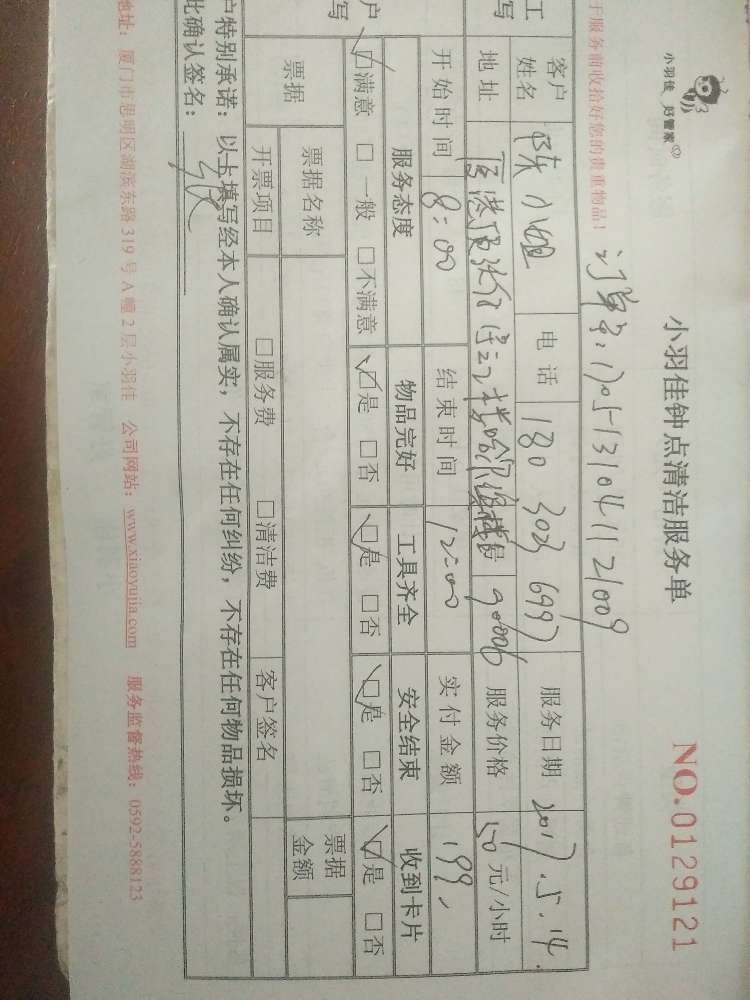 小羽佳 好管家
小羽佳钟点清洁服务单 NO.0129121
订单号:1705131041121009
于服务前收拾好您的贵重物品!
工 客户姓名 陈小姐 电话 180 3023 6997 服务日期 2017.5.14.
写 地址 员工号 90006 服务价格 50元/小时
开始时间 8:00 结束时间 12:00 实付金额 199
户 服务态度 物品完好 工具齐全 安全结束 收到卡片
写 ☑满意 □一般 □不满意 ☑是 □否 ☑是 □否 ☑是 □否 ☑是 □否
票据 票据名称 票据金额
开票项目 □服务费 □清洁费 客户签名
户特别承诺:以上填写经本人确认属实,不存在任何纠纷,不存在任何物品损坏。
此确认签名:
地址:厦门市思明区湖滨东路319号A幢2层小羽佳 公司网站:www.xiaoyujia.com 服务监督热线:0592-5888123